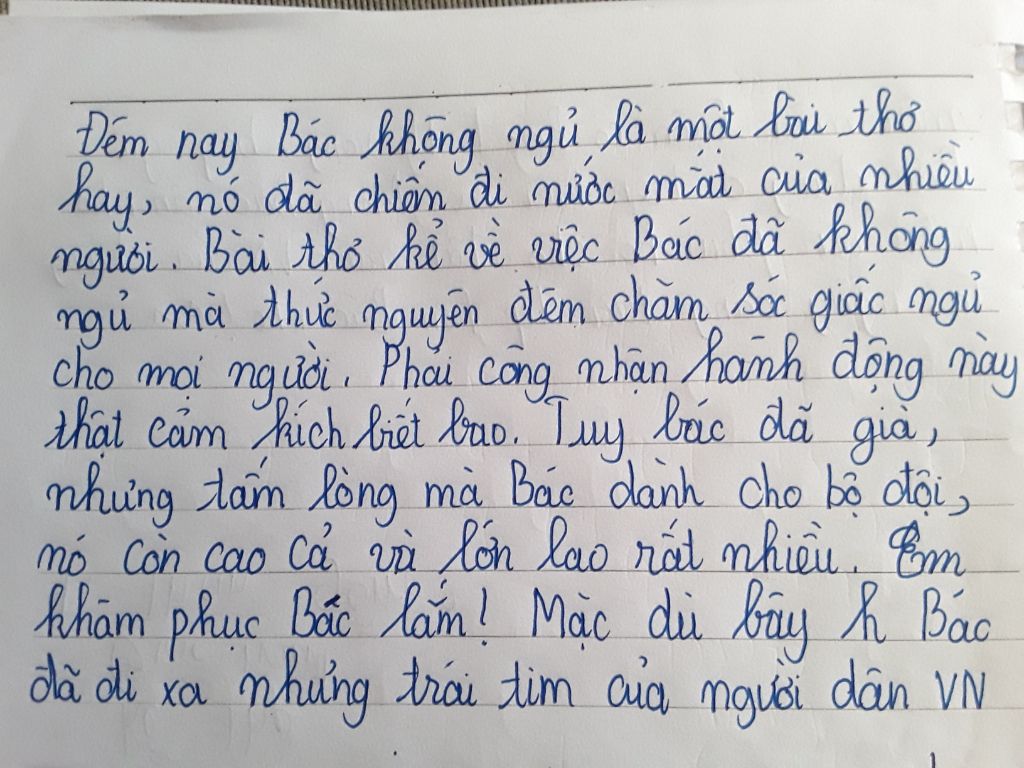 Đêm nay Bác không ngủ là một bài thơ
hay, nó đã chiếm đi nước mắt của nhiều
người. Bài thơ kể về việc Bác đã không
ngủ mà thức nguyên đêm chăm sóc giấc ngủ
cho mọi người. Phải công nhận hành động này
thật cảm kích biết bao. Tuy bác đã già,
nhưng tấm lòng mà Bác dành cho bộ đội,
nó còn cao cả và lớn lao rất nhiều. Em
khâm phục Bác lắm! Mặc dù bây h Bác
đã đi xa nhưng trái tim của người dân VN